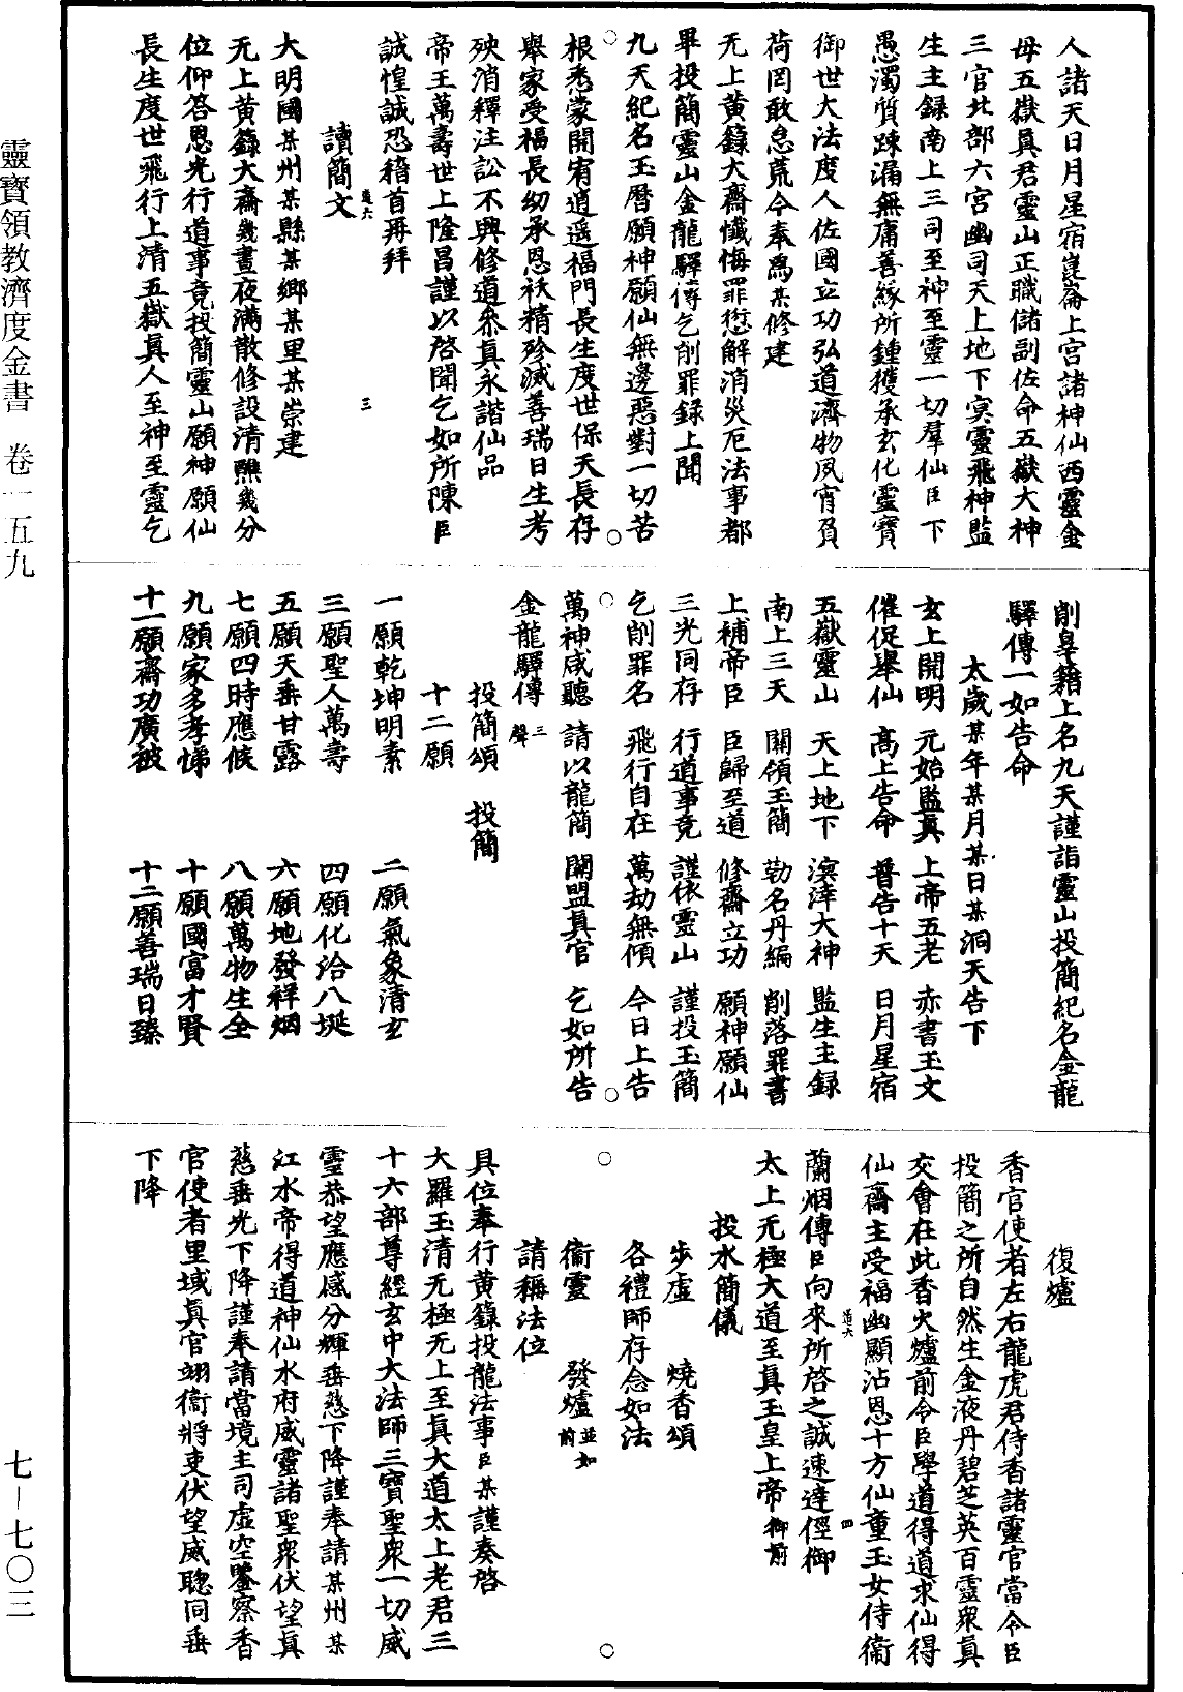 人諸天日月星宿崑崙上宮諸神仙西靈金
母五嶽真君靈山正職儲副佐命五嶽大神
三官北部六宮幽司天上地下冥靈飛神監
生主録南上三司至神至靈一切羣仙臣下
愚濁質踈漏無庸善緣所鍾獲承玄化靈寶
御世大法度人佐國立功弘道濟物夙宵負
荷罔敢怠荒今奉爲某修建
无上黄籙大齋懺悔罪愆解消災厄法事都
畢投簡靈山金龍驛傳乞削罪録上聞
九天紀名玉曆願神願仙無邊惡對一切苦
根悉蒙開宥逍遥福門長生度世保天長存
舉家受福長幼承恩祅精殄滅善瑞日生考
殃消釋注訟不興修道衆真永諧仙品
帝王萬壽世上隆昌謹以啓聞乞如所陳臣
誠惶誠恐稽首再拜
道六
三
讀簡文
大明國某州某縣某鄉某里某崇建
无上黄籙大齋幾晝夜滿散修設清醮幾分
位仰答恩光行道事竟投簡靈山願神願仙
長生度世飛行上清五嶽真人至神至靈乞
削辠籍上名九天謹詣靈山投簡紀名金龍
驛傳一如告命
太歲某年某月某日某洞天告下
玄上開明 元始監真 上帝五老 赤書玉文
催促舉仙 高上告命 普告十天 日月星宿
五嶽靈山 天上地下 溟涬大神 監生主録
南上三天 關領玉簡 勒名丹編 削落罪書
上補帝臣 臣歸至道 修齋立功 願神願仙
三光同存 行道事竟 謹依靈山 謹投玉簡
乞削罪名 飛行自在 萬劫無傾 今日上告
萬神咸聽 請以龍簡 關盟真官 乞如所告
金龍驛傳三聲
投簡頌 投簡
十二願
一願乾坤明素 二願氣象清玄
三願聖人萬壽 四願化洽八埏
五願天垂甘露 六願地發祥烟
七願四時應候 八願萬物生全
九願家多孝悌 十願國富才賢
十一願齋功廣被 十二願善瑞日臻
復爐
香官使者左右龍虎君侍香諸靈官當令臣
投簡之所自然生金液丹碧芝英百靈衆真
交會在此香火爐前令臣學道得道求仙得
仙齋主受福幽顯沾恩十方仙童玉女侍衞
道六
四
蘭烟傳臣向來所啓之誠速達徑御
太上无極大道至真玉皇上帝御前
投水簡儀
步虛 燒香頌
各禮師存念如法
衞靈 發爐並如前
請稱法位
具位奉行黄籙投龍法事臣某謹奏啓
大羅玉清无極无上至真大道太上老君三
十六部尊經玄中大法師三寶聖衆一切威
靈恭望應感分輝垂慈下降謹奉請某州某
江水帝得道神仙水府威靈諸聖衆伏望真
慈垂光下降謹奉請當境主司虛空鑒察香
官使者里域真官翊衞將吏伏望威聰同垂
下降
靈寶領教濟度金書 卷一五九
七－七〇三